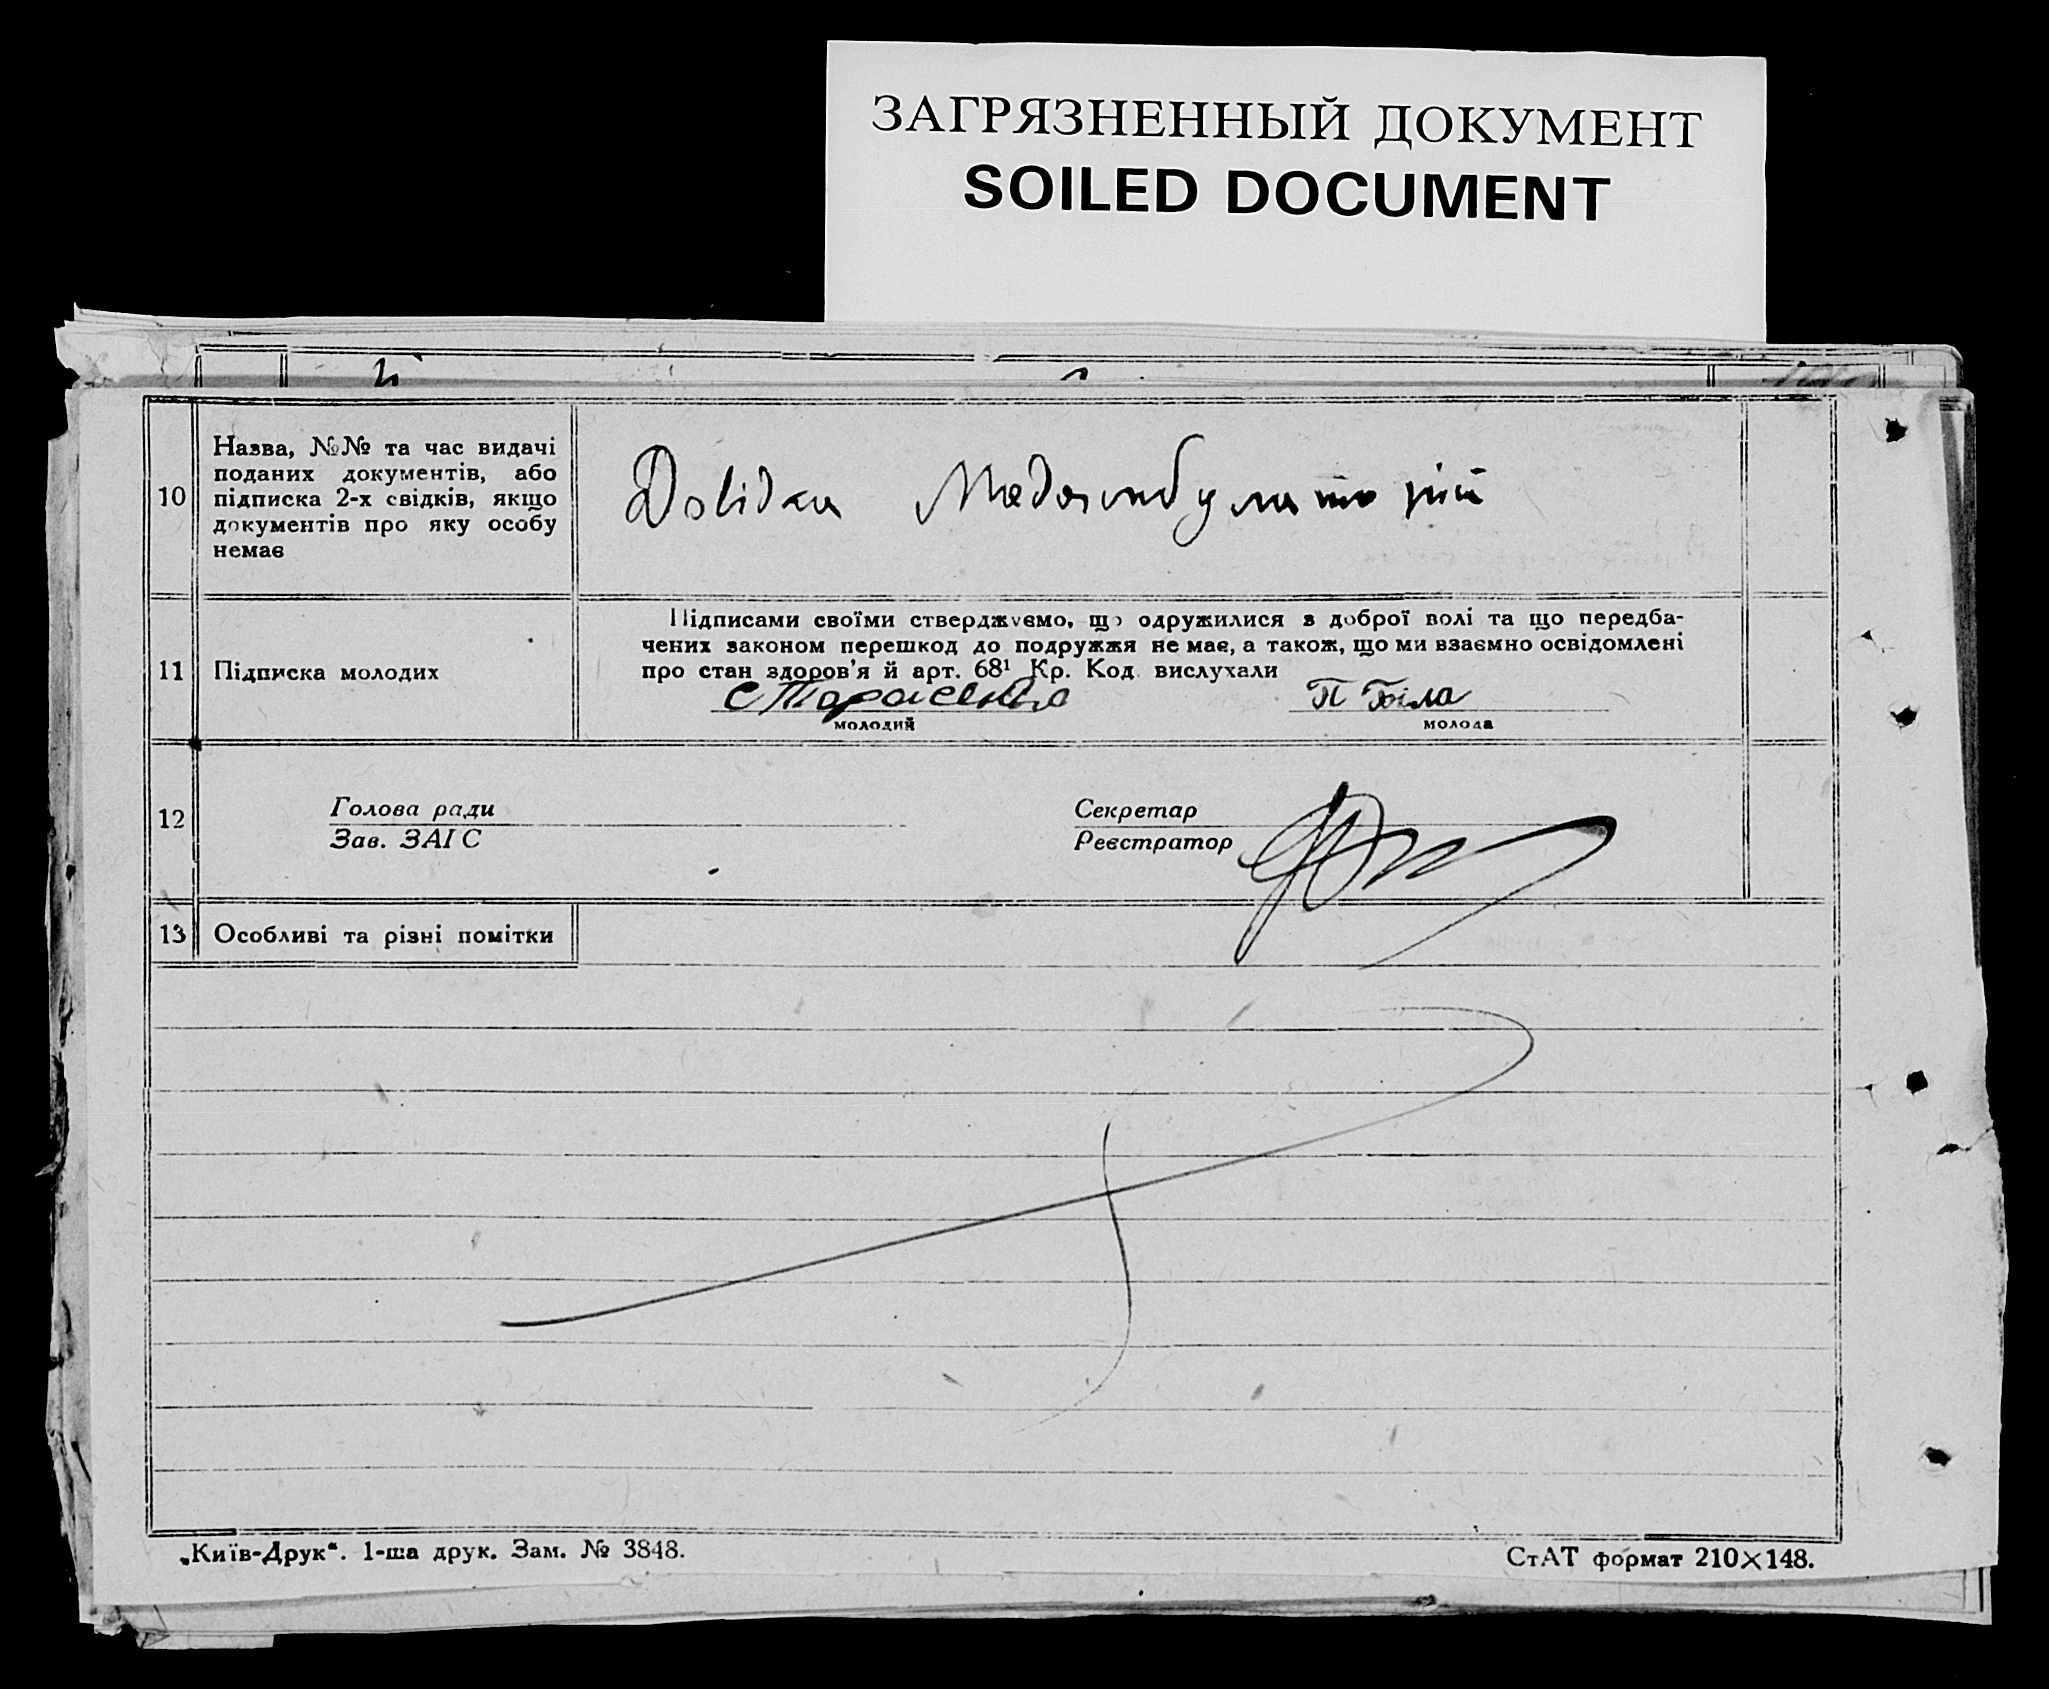 ЗАГРЯЗНЕННЫЙ ДОКУМЕНТ
SOILED DOCUMENT
10
Назва, №№ та час видачі
поданих документів, або
підписка 2-х свідків, якщо
документів про яку особу
немає
Довідка Медамбулаторій
11
Підписка молодих
Підписами своїми стверджуємо, що одружилися з доброї волі та що передба-
чених законом перешкод до подружжя не має, а також, що ми взаємно освідомлені
про стан здоров'я й арт. 68¹ Кр. Код вислухали
С Тарасенко
П Біла
молодий
молода
12
Голова ради
Зав. ЗАГС
Секретар
Реєстратор
13
Особливі та різні помітки
„Київ-Друк“. 1-ша друк. Зам. № 3848.
СтАТ формат 210×148.